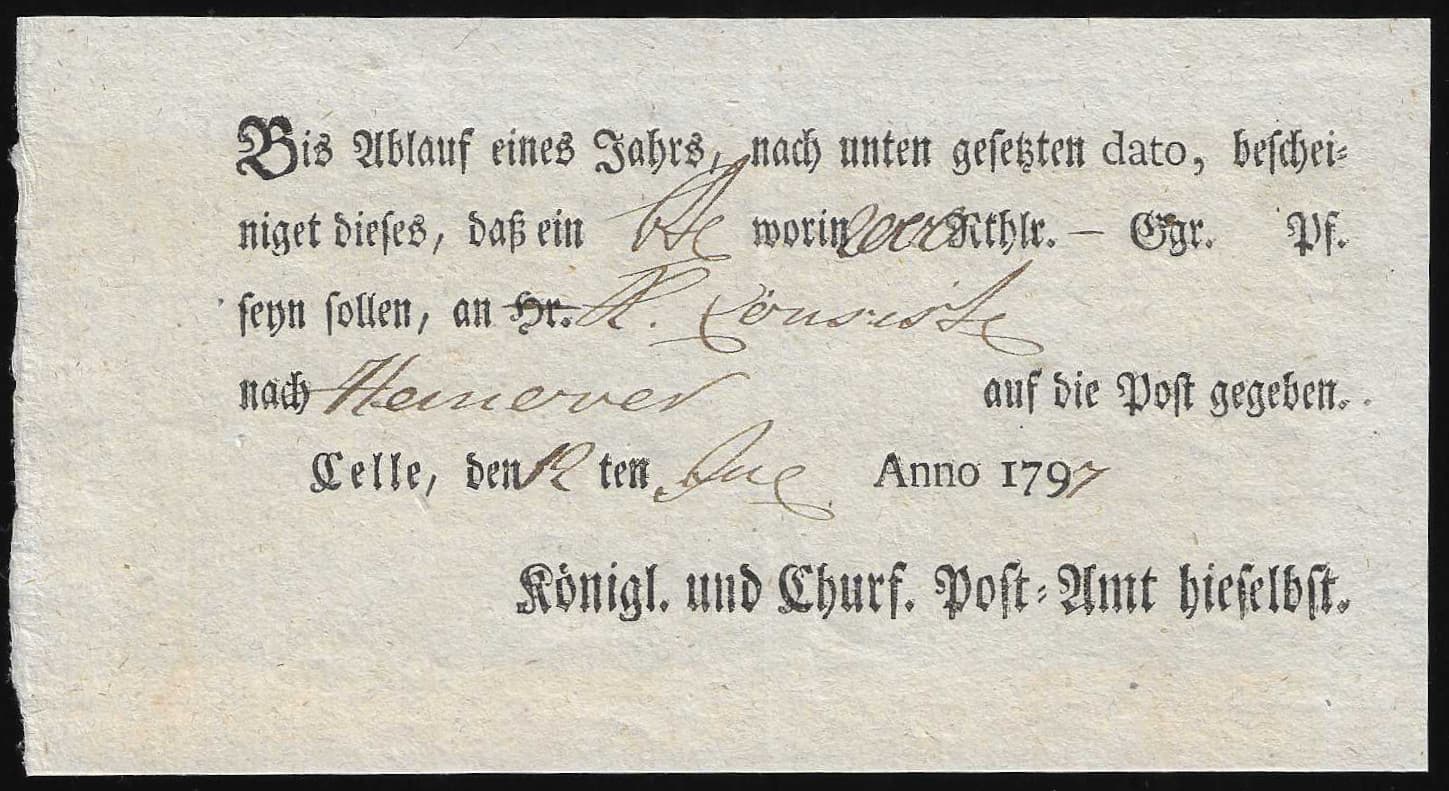 Bis Ablauf eines Jahrs, nach unten gesetzten dato, beschei-
niget dieses, daß ein worin Rthlr. – Ggr. Pf.
seyn sollen, an Hr. K.
nach Hannover auf die Post gegeben.
Celle, den 12 ten Anno 1797
Königl. und Churf. Post-Amt hieselbst.